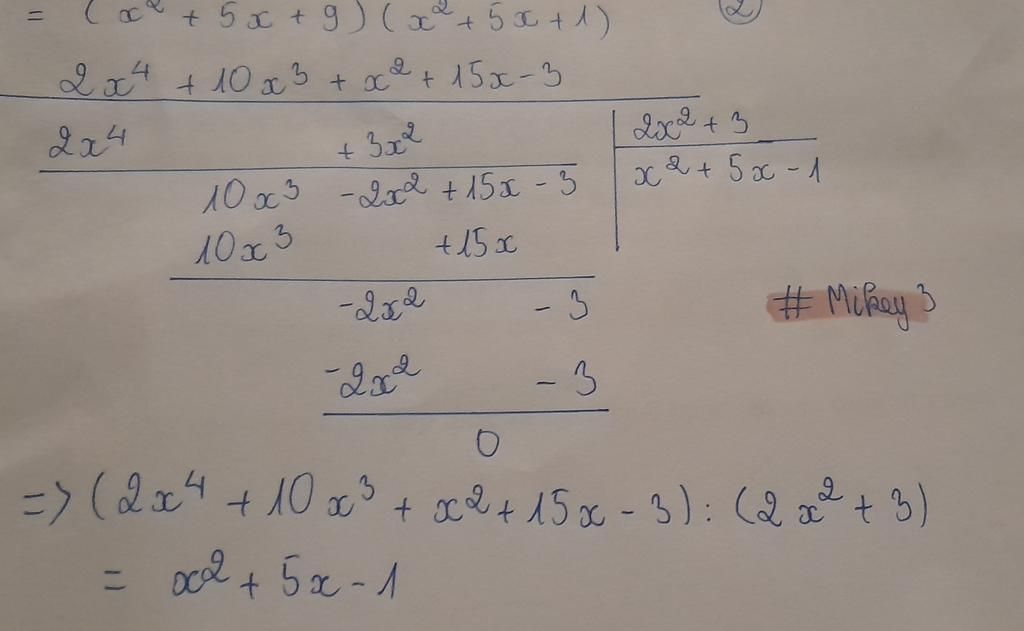 = (x² + 5x + 9)(x² + 5x + 1) ②
2x⁴ + 10x³ + x² + 15x - 3
2x⁴ + 3x² 2x² + 3
10x³ - 2x² + 15x - 3 x² + 5x - 1
10x³ + 15x
-2x² - 3
# Mikey 3
-2x² - 3
0
=> (2x⁴ + 10x³ + x² + 15x - 3) : (2x² + 3)
= x² + 5x - 1